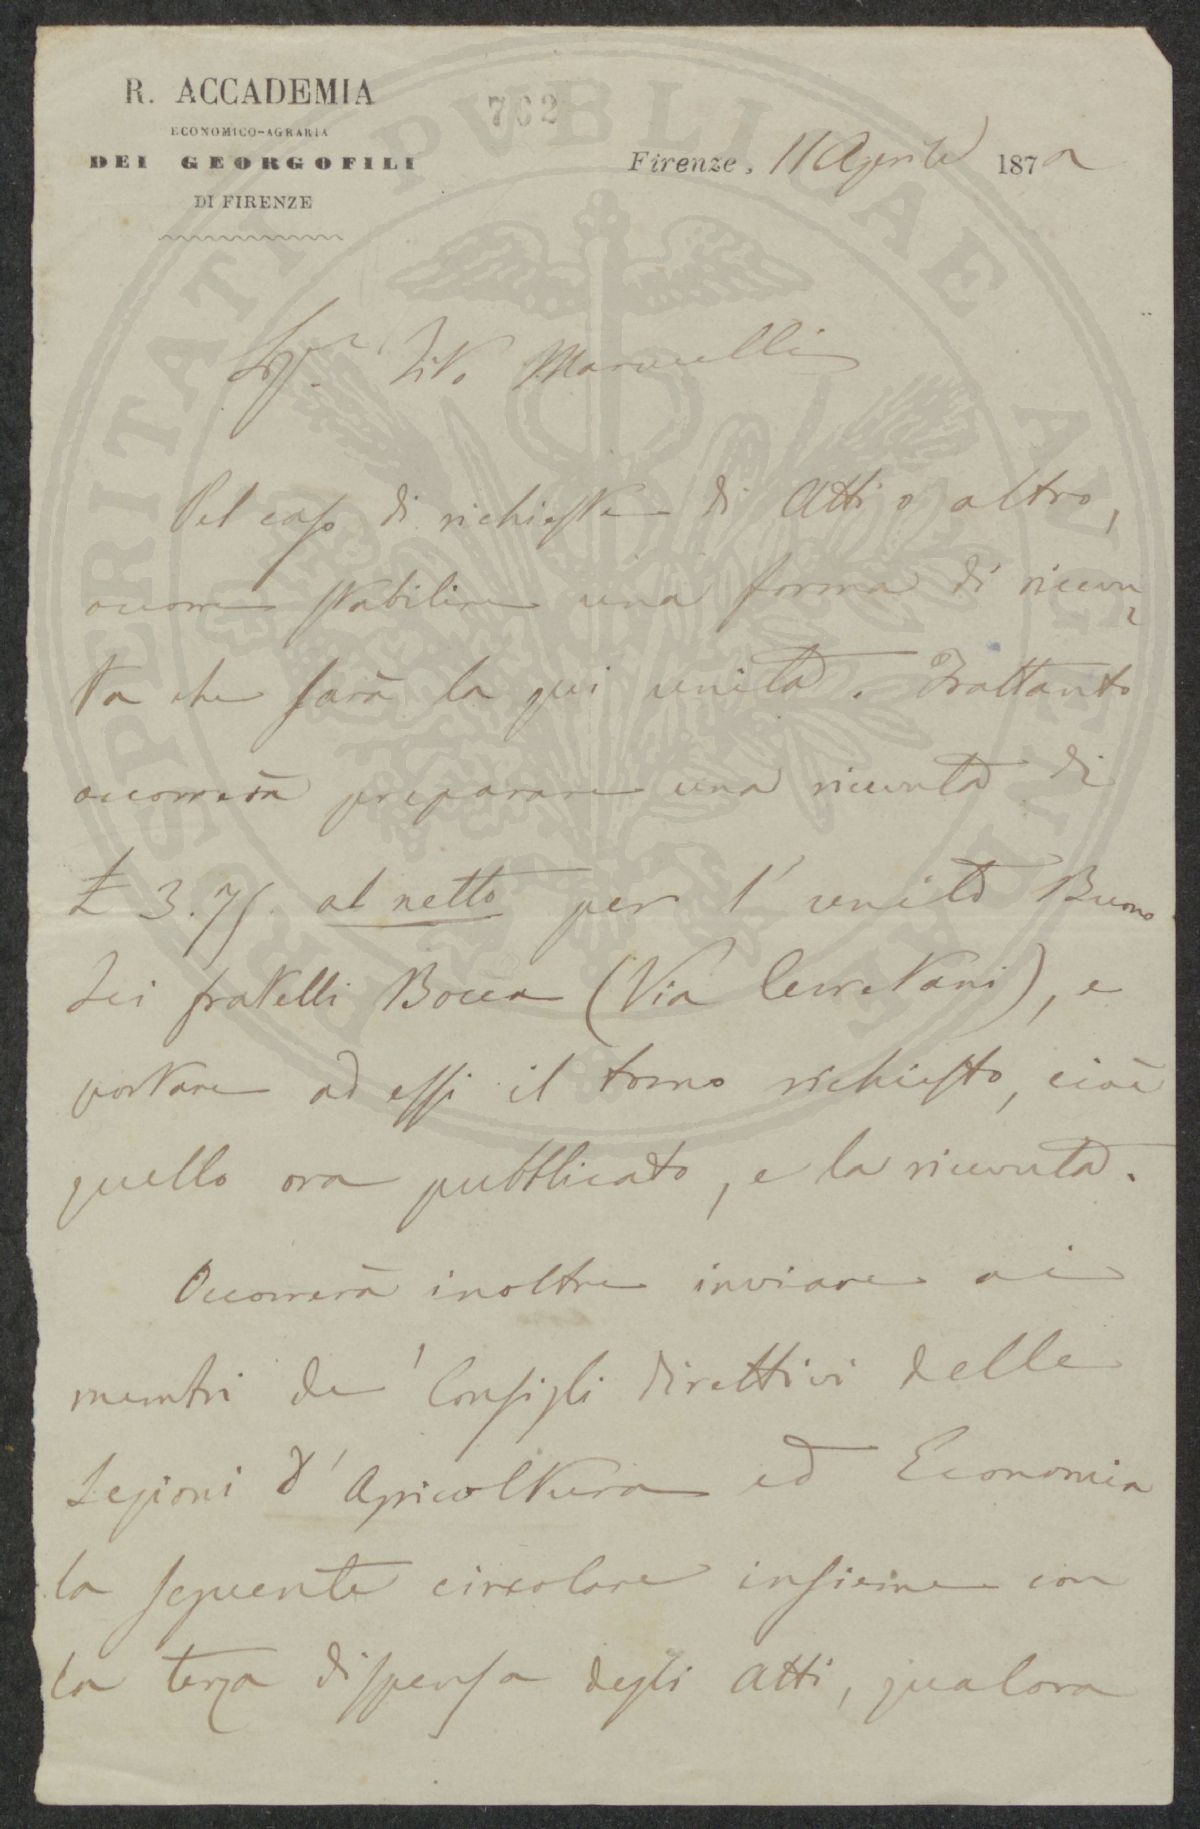 R. ACCADEMIA
ECONOMICO-AGRARIA
DEI GEORGOFILI
DI FIRENZE
762
Firenze, 11 Aprile 187
PROSPERITATI PVBLICAE AVGENDAE
Sigr. Tito Marucelli
Pel caso di richieste di Atti o altro,
occorre stabilire una forma di ricevu-
ta che sarà la qui unita. Frattanto
occorrerà preparare una ricevuta di
£ 3.75 al netto per l'unito Buono
dei fratelli Bocca (Via Cerretani), e
portare ad essi il tomo richiesto, cioè
quello ora pubblicato, e la ricevuta.
Occorrerà inoltre inviare ai
membri de' Consigli direttivi delle
Sezioni d'Agricoltura ed Economia
la seguente circolare insieme con
la terza dispensa degli Atti, qualora